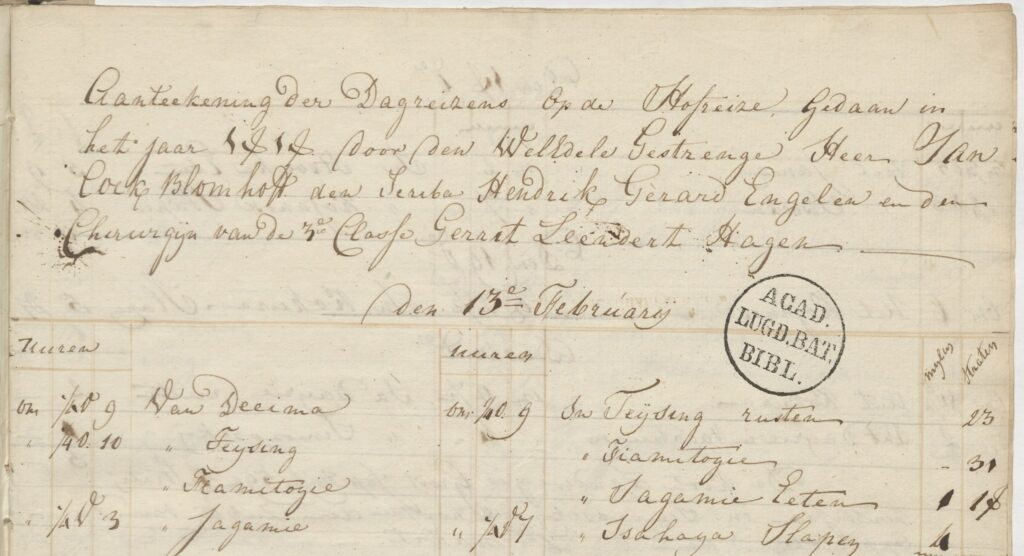 Aanteekening der Dagreizens op de Hofreize, Gedaan in
het jaar 1818 door den WelEdele Gestrenge Heer Jan
Cock Blomhoff den Scriba Hendrik Gerard Engelen en den
Chirurgijn van de 3de Classe Gerrit Leendert Hagen
den 13e February
ACAD.
LUGD. BAT.
BIBL.
Uuren uuren mylen straten
om 9 Van Decima om 9 In Teijsing rusten 23
" 10 " Teijsing " Fiamitogie - 31
" Fiamitogie " Jagamie Eeten 1 18
" 3 " Jagamie " 7 " Isahaya Slapen 4